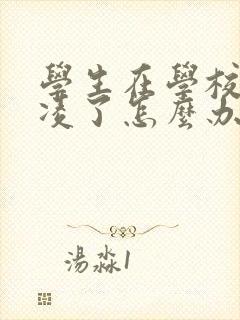 學生在學校
凌了怎麼办
湯淼1